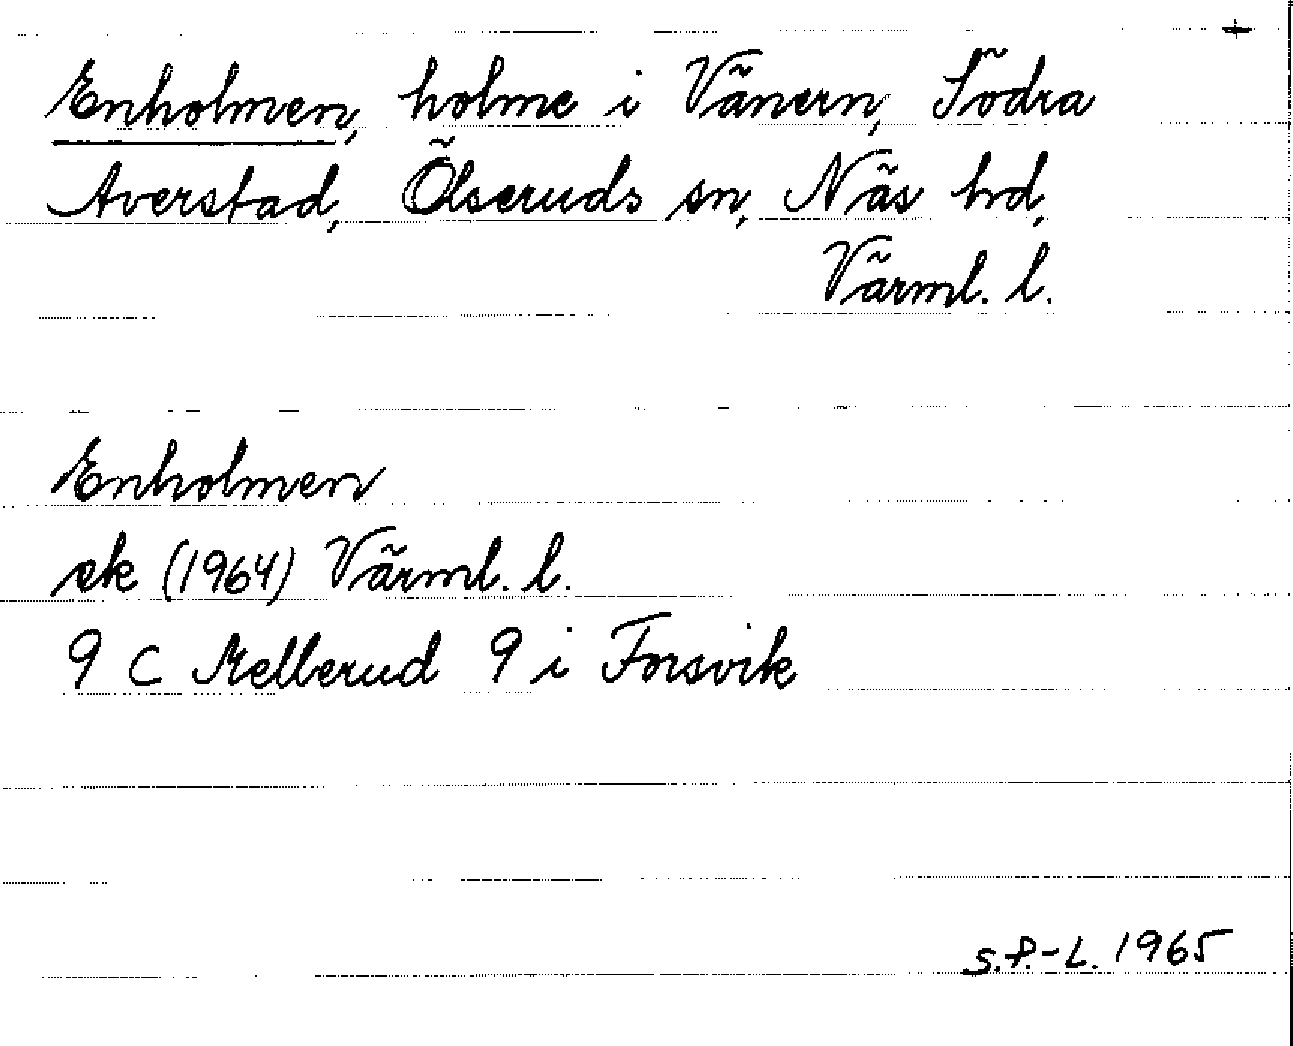 Enholmen, holme i Vänern, Södra
Averstad, Ölseruds sn, Näs hd,
Värml. l.
Enholmen
ek (1964) Värml. l.
9 C Mellerud 9 i Forsvik
S.P.-L. 1965